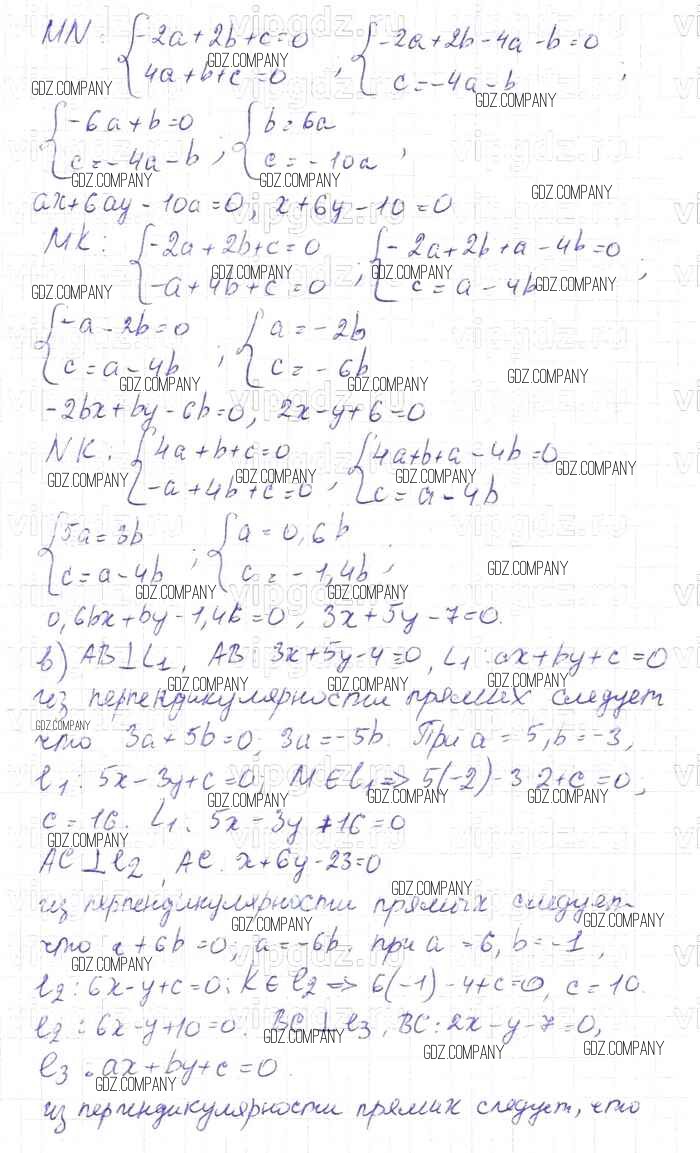 MN: { -2a+2b+c=0 { -2a+2b-4a-b=0
4a+b+c=0 , c=-4a-b ;
{ -6a+b=0 { b=6a
c=-4a-b ; c=-10a ,
ax+6ay-10a=0; x+6y-10=0
MK: { -2a+2b+c=0 { -2a+2b+a-4b=0
-a+4b+c=0 ; c=a-4b ;
{ -a-2b=0 { a=-2b
c=a-4b ; c=-6b
-2bx+by-6b=0, 2x-y+6=0
NK: { 4a+b+c=0 { 4a+b+a-4b=0
-a+4b+c=0 , c=a-4b
{ 5a=3b { a=0,6b
c=a-4b ; c=-1,4b ;
0,6bx+by-1,4b=0, 3x+5y-7=0.
в) AB⊥L₁, AB: 3x+5y-4=0, L₁: ax+by+c=0
из перпендикулярности прямых следует
что 3a+5b=0; 3a=-5b. При a=5, b=-3,
l₁: 5x-3y+c=0; M∈l₁=> 5(-2)-3 2+c=0;
c=16. L₁: 5x-3y+16=0
AC⊥l₂, AC: x+6y-23=0
из перпендикулярности прямых следует
что a+6b=0; a=-6b. при a=6, b=-1,
l₂: 6x-y+c=0; K∈l₂=> 6(-1)-4+c=0, c=10.
l₂: 6x-y+10=0. BC⊥l₃, BC: 2x-y-7=0,
l₃: ax+by+c=0.
из перпендикулярности прямых следует, что
GDZ.COMPANY
vipgdz.ru